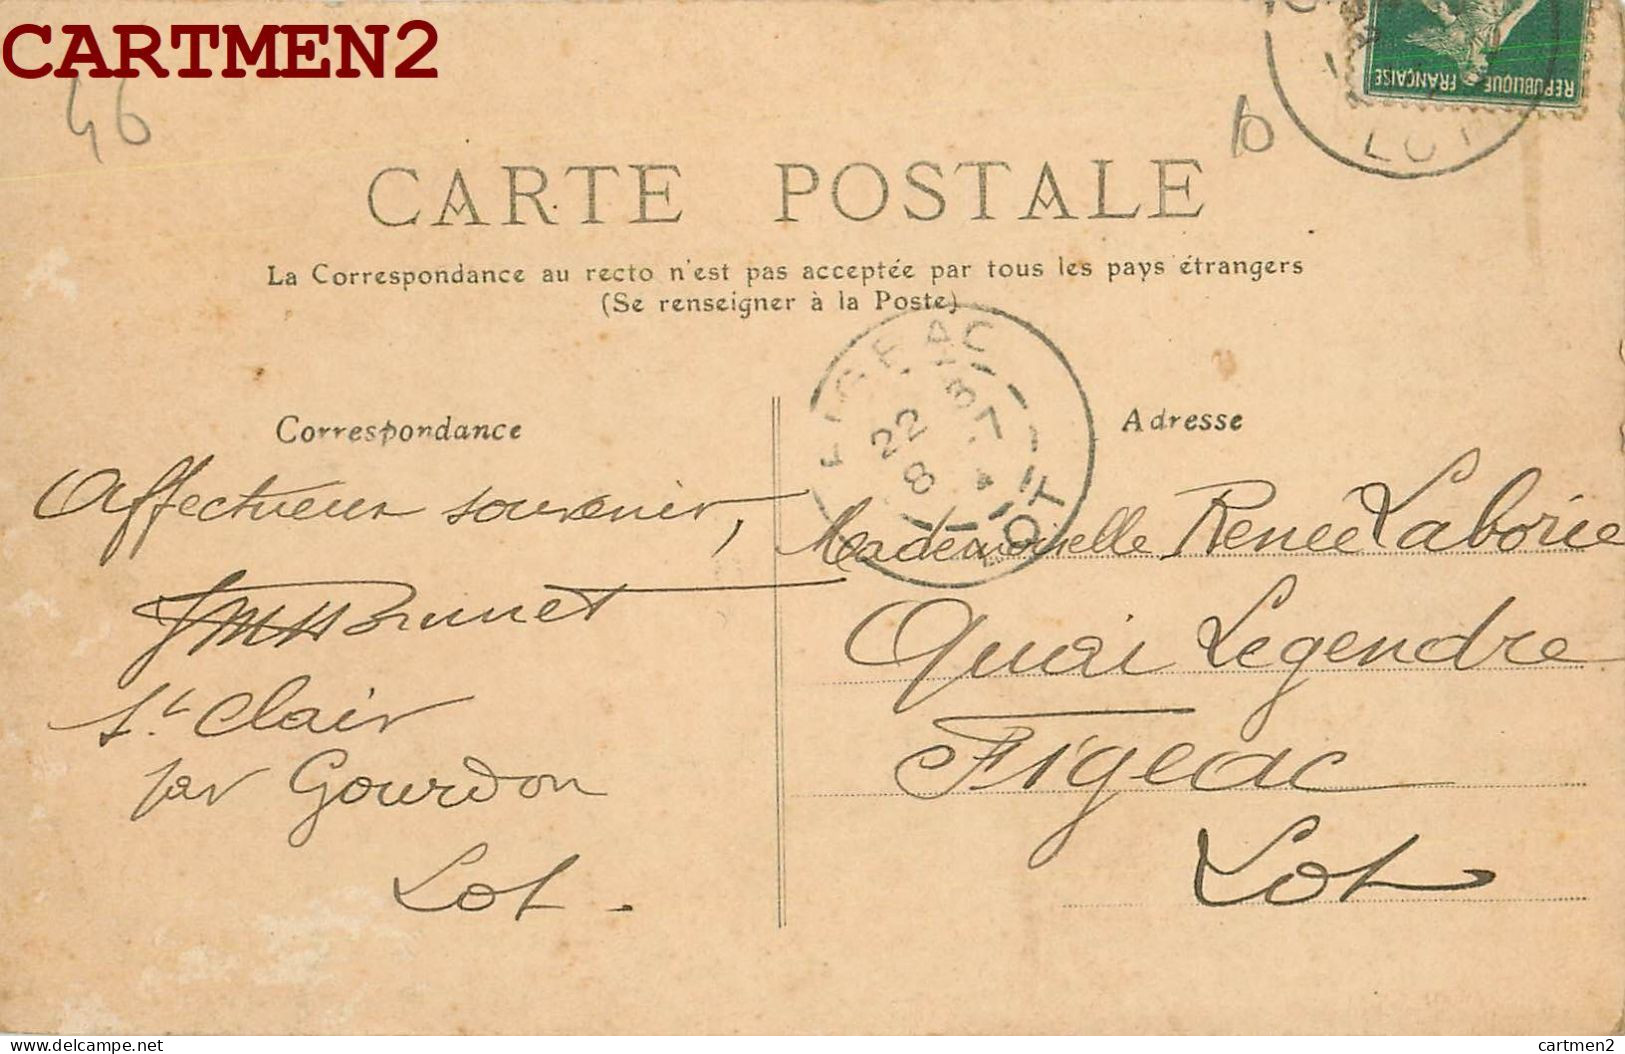 CARTMEN2
46
10
REPUBLIQUE FRANÇAISE
LOT
CARTE POSTALE
La Correspondance au recto n'est pas acceptée par tous les pays étrangers
(Se renseigner à la Poste)
FIGEAC
22
8
LOT
Correspondance
Affectueux souvenir,
Brunet
St. Clair
par Gourdon
Lot.
Adresse
Mademoiselle Renée Laborie
Quai Legendre
Figeac
Lot
www.delcampe.net
cartmen2